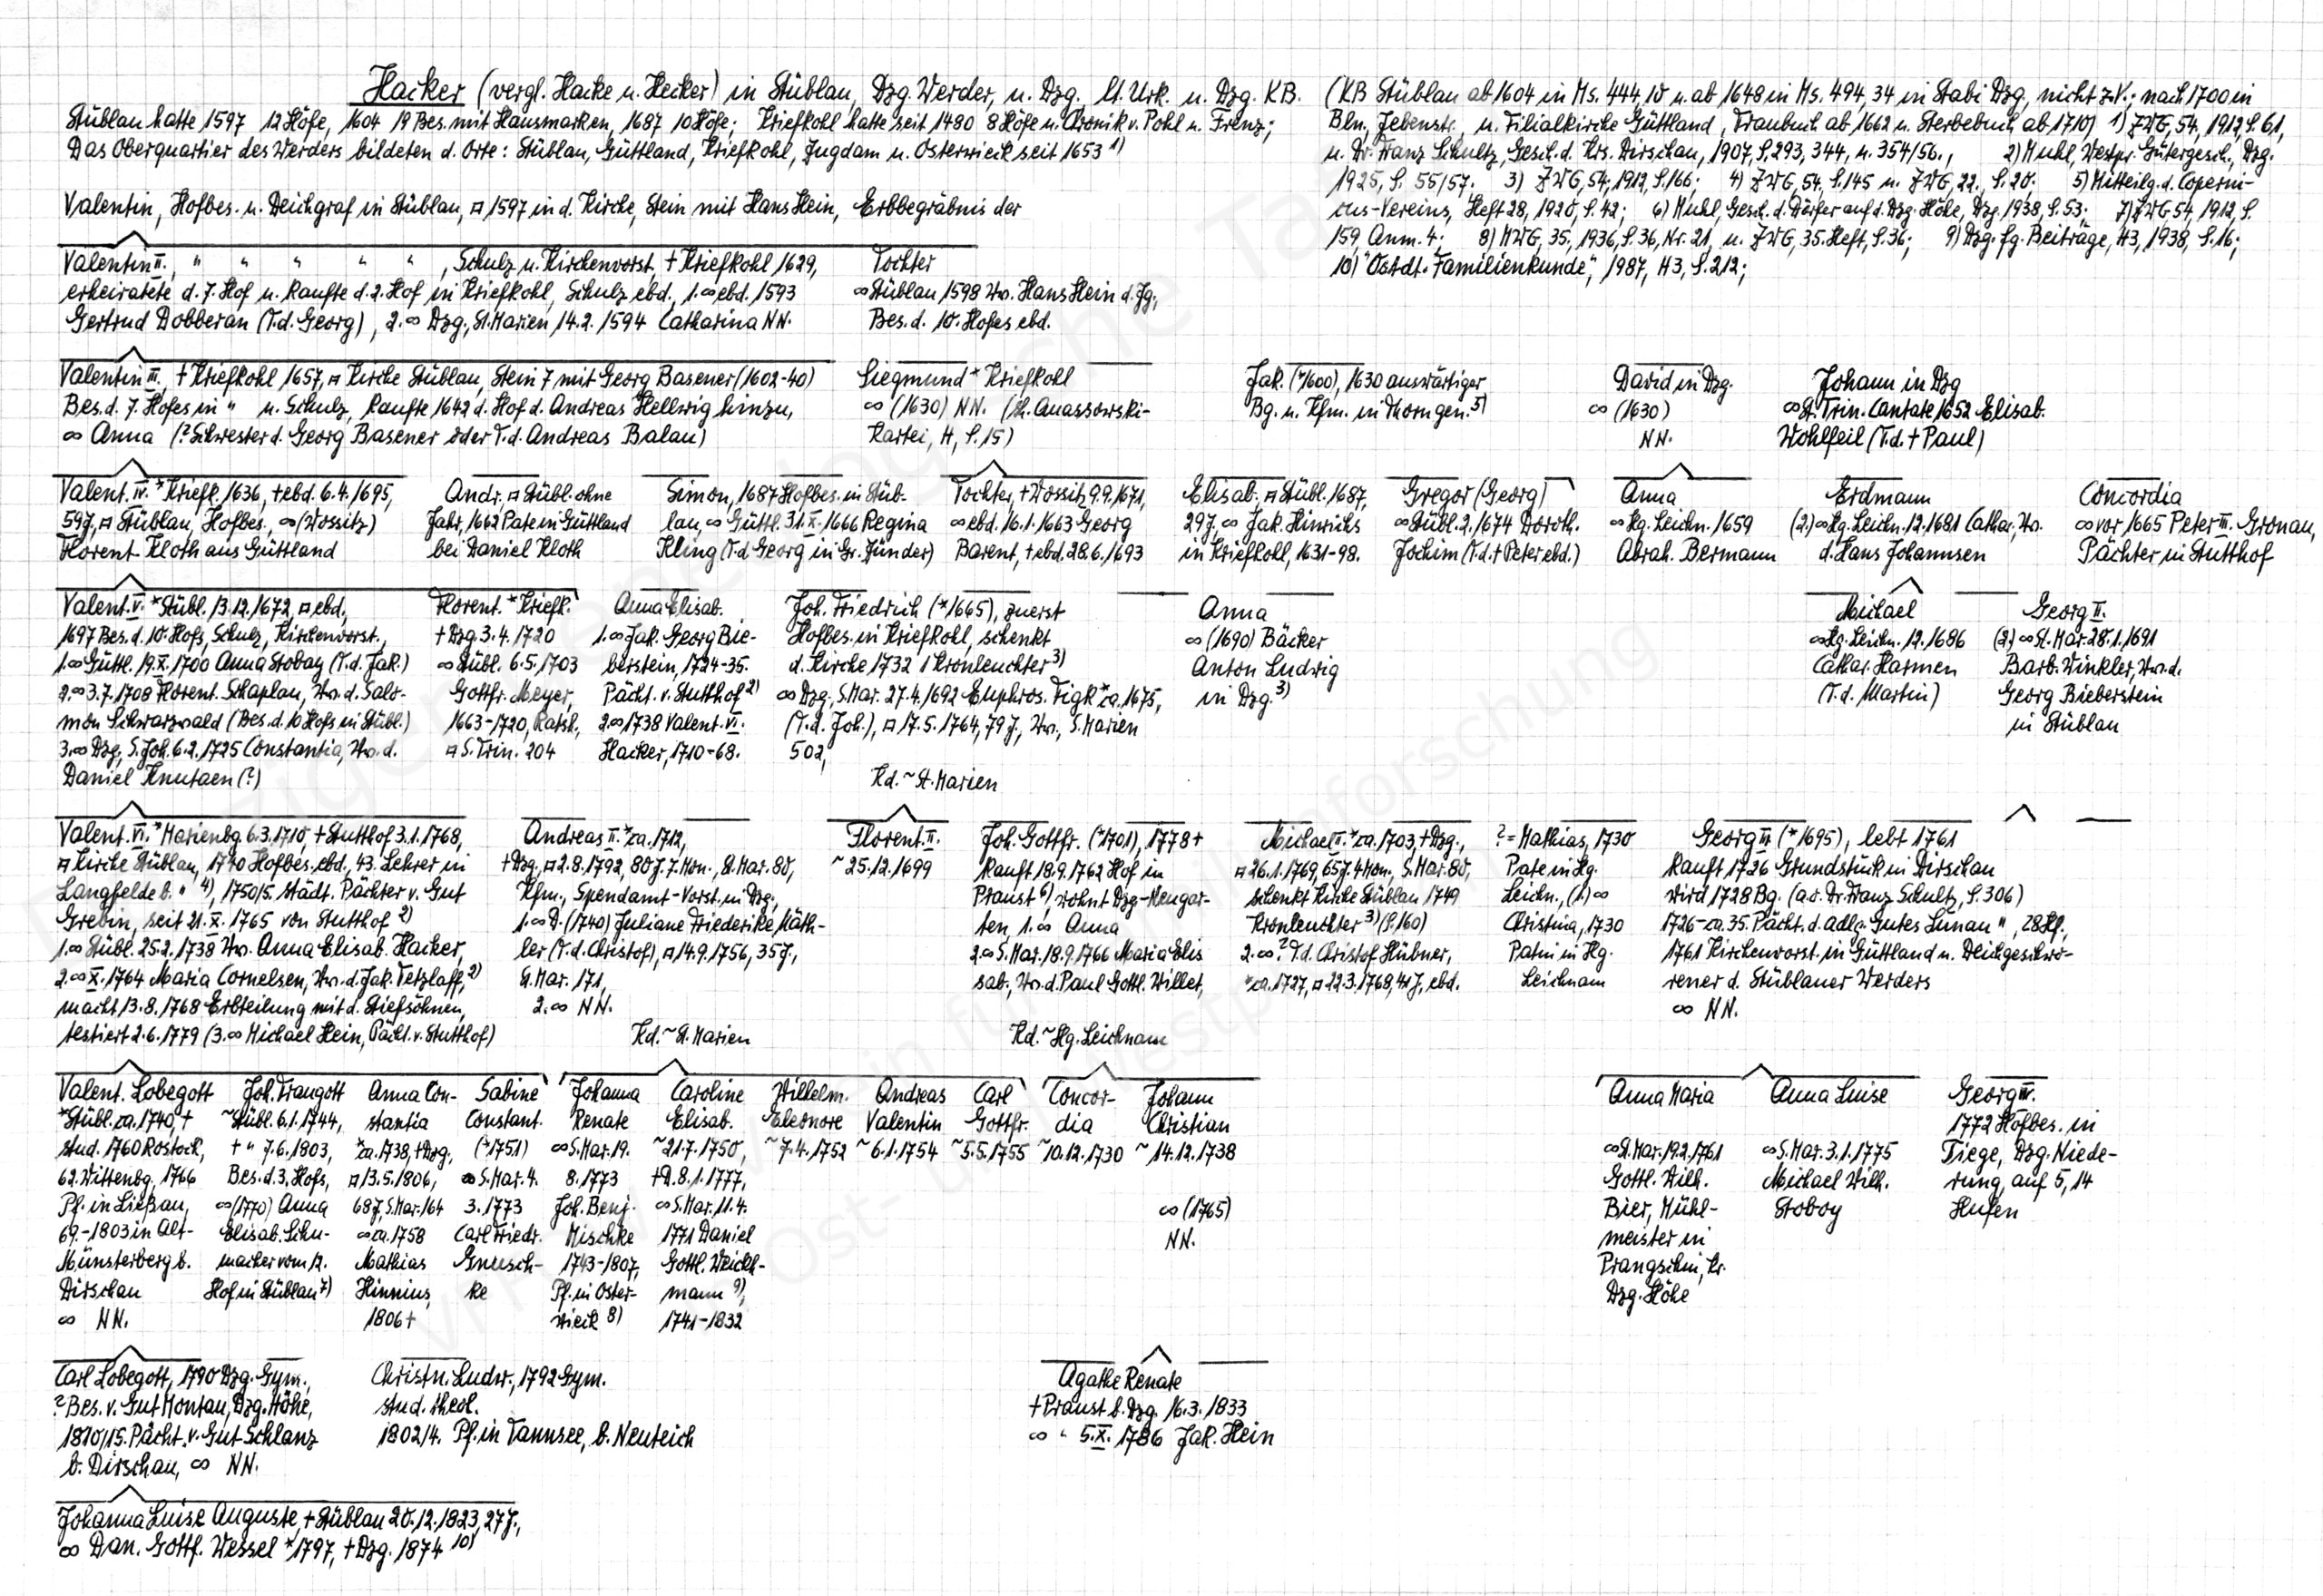 Hacker (vergl. Hacke u. Hecker) in Stüblau, Dzg. Werder, u. Dzg. lt. Urk. u. Dzg. KB.
Stüblau hatte 1597 12 Höfe, 1604 19 Bes. mit Hausmarken, 1687 10 Höfe; Kriefkohl hatte seit 1480 8 Höfe u. Chronik v. Pohl u. Frenz;
Das Oberquartier des Werders bildeten d. Orte: Stüblau, Güttland, Kriefkohl, Zugdam u. Osterwieck seit 1653 1)
(KB Stüblau ab 1604 in Ms. 444, 10 u. ab 1648 in Ms. 494, 34 in Stabi Dzg., nicht z.V.; nach 1700 in
Bln, Jebenstr., u. Filialkirche Güttland, Traubuch ab 1662 u. Sterbebuch ab 1710) 1) ZWG, 54, 1912, S. 61,
u. Dr. Franz Schultz, Gesch. d. Krs. Dirschau, 1907, S. 293, 344, u. 354/56., 2) Muhl, Westpr. Gütergesch., Dzg.
1925, S. 55/57. 3) ZWG, 54, 1912, S. 166; 4) ZWG, 54, S. 145 u. ZWG, 22, S. 20. 5) Mitteilg. d. Coperni-
cus-Vereins, Heft 28, 1920, S. 42; 6) Muhl, Gesch. d. Dörfer auf d. Dzg. Höhe, Dzg. 1938, S. 53; 7) ZWG 54, 1912, S.
159, Anm. 4; 8) MWG, 35, 1936, S. 36, Nr. 21, u. ZWG, 35. Heft, S. 36; 9) Dzg. fg. Beiträge, H3, 1938, S. 16;
10) "Ostdt. Familienkunde", 1987, H3, S. 212;
Valentin, Hofbes. u. Deichgraf in Stüblau, ⚰ 1597 in d. Kirche, Stein mit Hans Hein, Erbbegräbnis der
Valentin II., " " " " ", Schulz u. Kirchenvorst., + Kriefkohl 1629,
erheiratete d. 7. Hof u. kaufte d. 2. Hof in Kriefkohl, Schulz ebd., 1. ∞ ebd. 1593
Gertrud Dobberan (T. d. Georg), 2. ∞ Dzg., St. Marien 14.2.1594 Catharina NN.
Tochter
∞ Stüblau 1598 Ww. Hans Hein d. Jg.,
Bes. d. 10. Hofes ebd.
Valentin III., + Kriefkohl 1657, ⚰ Kirche Stüblau, Stein 7 mit Georg Basener (1602-40)
Bes. d. 7. Hofes in " u. Schulz, kaufte 1642 d. Hof d. Andreas Hellwig hinzu,
∞ Anna (? Schwester d. Georg Basener oder T. d. Andreas Balau)
Siegmund * Kriefkohl
∞ (1630) NN. (lt. Quassowski-
Kartei, H, S. 15)
Jak. (*1600), 1630 auswärtiger
Bg. u. Kfm. in Thorn gen. 5)
David in Dzg.
∞ (1630)
NN.
Johann in Dzg
∞ St. Trin. Cantate 1652 Elisab.
Wohlfeil (T. d. + Paul)
Valent. IV. * Kriefk. 1636, + ebd. 6.4.1695,
59J, ⚰ Stüblau, Hofbes., ∞ (Wossitz)
Florent. Kloth aus Güttland
Andr., ⚰ Stübl. ohne
Jahr, 1662 Pate in Güttland
bei Daniel Kloth
Simon, 1687 Hofbes. in Stüb-
lau ∞ Güttl. 31.X.1666 Regina
Kling (T. d. Georg in Gr. Zünder)
Tochter, + Wossitz 9.9.1671,
∞ ebd. 16.1.1663 Georg
Barent, + ebd. 28.6.1693
Elisab. ⚰ Stübl. 1687,
29J. ∞ Jak. Hinrichs
in Kriefkohl, 1631-98.
Gregor (Georg)
∞ Stübl. 2.1674 Doroth.
Jochim (T. d. + Peter ebd.)
Anna
∞ Hg. Leichn. 1659
Abrah. Bermann
Erdmann
(2.) ∞ Hg. Leichn. 12.1681 Cathar., Ww.
d. Hans Johannsen
Concordia
∞ vor 1665 Peter III. Gronau,
Pächter in Stutthof
Valent. V. * Stübl. 13.12.1672, ⚰ ebd.,
1697 Bes. d. 10. Hofs, Schulz, Kirchenvorst.,
1. ∞ Güttl. 19.X.1700 Anna Stobay (T. d. Jak.)
2. ∞ 3.7.1708 Florent. Schaplau, Ww. d. Salo-
mon Schwarzwald (Bes. d. 10 Hofs in Stübl.)
3. ∞ Dzg., S. Joh. 6.2.1725 Constantia, Ww. d.
Daniel Knutzen (?)
Florent. * Kriefk.
+ Dzg. 3.4.1720
∞ Stübl. 6.5.1703
Gottfr. Meyer,
1663-1720, Ratsh.,
⚰ S. Trin. 204
Anna Elisab.
1. ∞ Jak. Georg Bie-
berstein, 1724-35.
Pächt. v. Stutthof 2)
2. ∞ 1738 Valent. VI.
Hacker, 1710-68.
Joh. Friedrich (*1665), zuerst
Hofbes. in Kriefkohl, schenkt
d. Kirche 1732 1 Kronleuchter 3)
∞ Dzg., S. Mar. 27.4.1692 Euphros. Figk * ca. 1675,
(T. d. Joh.), ⚰ 17.5.1764, 79 J., Ww., S. Marien
502,
Kd. ~ St. Marien
Anna
∞ (1690) Bäcker
Anton Ludwig
in Dzg. 3)
Michael
∞ Hg. Leichn. 12.1686
Cathar. Harmen
(T. d. Martin)
Georg II.
(2.) ∞ St. Mar. 28.1.1691
Barb. Winkler, Ww. d.
Georg Bieberstein
in Stüblau
Valent. VI. * Marienbg. 6.3.1710, + Stutthof 3.1.1768,
⚰ Kirche Stüblau, 1740 Hofbes. ebd., 43. Lehrer in
Langfelde b. " 4), 1750/5 städt. Pächter v. Gut
Grebin, seit 21.X.1765 von Stutthof 2)
1. ∞ Stübl. 25.2.1738 Ww. Anna Elisab. Hacker,
2. ∞ X.1764 Maria Cornelsen, Ww. d. Jak. Tetzlaff, 2)
macht 13.8.1768 Erbteilung mit d. Stiefsöhnen,
testiert 2.6.1779 (3. ∞ Michael Hein, Pächt. v. Stutthof)
Andreas II. * ca. 1712,
+ Dzg., ⚰ 2.8.1792, 80 J. 7. Mon., St. Mar. 80,
Kfm., Spendamt-Vorst. in Dzg.,
1. ∞ D. (1740) Juliane Friederike Käth-
ler (T. d. Christof), ⚰ 14.9.1756, 35 J.,
S. Mar. 171,
2. ∞ NN.
Kd. ~ St. Marien
Florent. II.
~ 25.12.1699
Joh. Gottfr. (*1701), 1778 +
kauft 18.9.1762 Hof in
Praust 6), wohnt Dzg.-Neugar-
ten, 1. ∞ Anna
2. ∞ S. Mar. 18.9.1766 Maria Elis
sab., Ww. d. Paul Gottl. Willet,
Kd. ~ Hg. Leichnam
Michael II. * ca. 1703, + Dzg.,
⚰ 26.1.1769, 65 J. 4 Mon., S. Mar. 80,
schenkt Kirche Stüblau 1749
Kronleuchter 3) (S. 160)
2. ∞ ? T. d. Christof Hübner,
* ca. 1727, ⚰ 22.3.1768, 41 J, ebd.
? = Mathias, 1730
Pate in Hg.
Leichn., (1.) ∞
Christina, 1730
Patin in Hg.
Leichnam
Georg III (*1695), lebt 1761
kauft 1726 Grundstück in Dirschau
wird 1728 Bg. (a.o. Dr. Franz Schultz, S. 306)
1726-ca. 35. Pächt. d. adlg. Gutes Lunau ", 28 Hf.,
1761 Kirchenvorst. in Güttland u. Deichgeschwo-
rener d. Stüblauer Werders
∞ NN.
Valent. Lobegott
* Stübl. ca. 1740, +
stud. 1760 Rostock,
62. Wittenbg, 1766
Pf. in Ließau,
69.-1803 in Alt-
Münsterberg b.
Dirschau
∞ NN.
Joh. Traugott
~ Stübl. 6.1.1744,
+ " 7.6.1803,
Bes. d. 3. Hofs,
∞ (1770) Anna
Elisab. Schu-
macher vom 12.
Hof in Stüblau 7)
Anna Con-
stantia
* ca. 1738, + Dzg.,
⚰ 13.5.1806,
68J, S. Mar. 164
∞ ca. 1758
Mathias
Hinnius,
1806 +
Sabine
Constant.
(*1751)
∞ S. Mar. 4.
3.1773
Carl Friedr.
Gnusch-
ke
Johanna
Renate
∞ S. Mar. 19.
8.1773
Joh. Benj.
Mischke
1743-1807,
Pf. in Oster-
wieck 8)
Caroline
Elisab.
~ 21.7.1750,
+ D. 8.1.1777,
∞ S. Mar. 11.4.
1771 Daniel
Gottl. Weickh-
mann 9),
1741-1832
Wilhelm.
Eleonore
~ 7.4.1752
Andreas
Valentin
~ 6.1.1754
Carl
Gottfr.
~ 5.5.1755
Concor-
dia
~ 10.12.1730
Johann
Christian
~ 14.12.1738
∞ (1765)
NN.
Anna Maria
∞ St. Mar. 19.2.1761
Gottl. Wilh.
Bier, Mühl-
meister in
Prangschin, Kr.
Dzg. Höhe
Anna Luise
∞ S. Mar. 3.1.1775
Michael Wilh.
Stoboy
Georg IV.
1772 Hofbes. in
Tiege, Dzg. Niede-
rung, auf 5, 14
Hufen
Carl Lobegott, 1790 Dzg. Gym.,
? Bes. v. Gut Montau, Dzg. Höhe,
1810/15. Pächt. v. Gut Schlanz
b. Dirschau, ∞ NN.
Christn. Ludw., 1792 Gym.
stud. theol.
1802/4. Pf. in Tannsee, b. Neuteich
Agathe Renate
+ Praust b. Dzg. 16.3.1833
∞ " 5.X.1786 Jak. Hein
Johanna Luise Auguste, + Stüblau 20.12.1823, 27 J.,
∞ Dan. Gottf. Wessel * 1797, + Dzg. 1874 10)